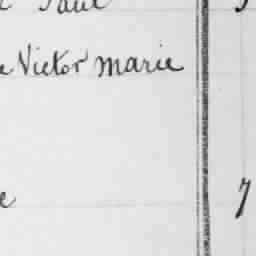 Paul
e Victor marie
e 7